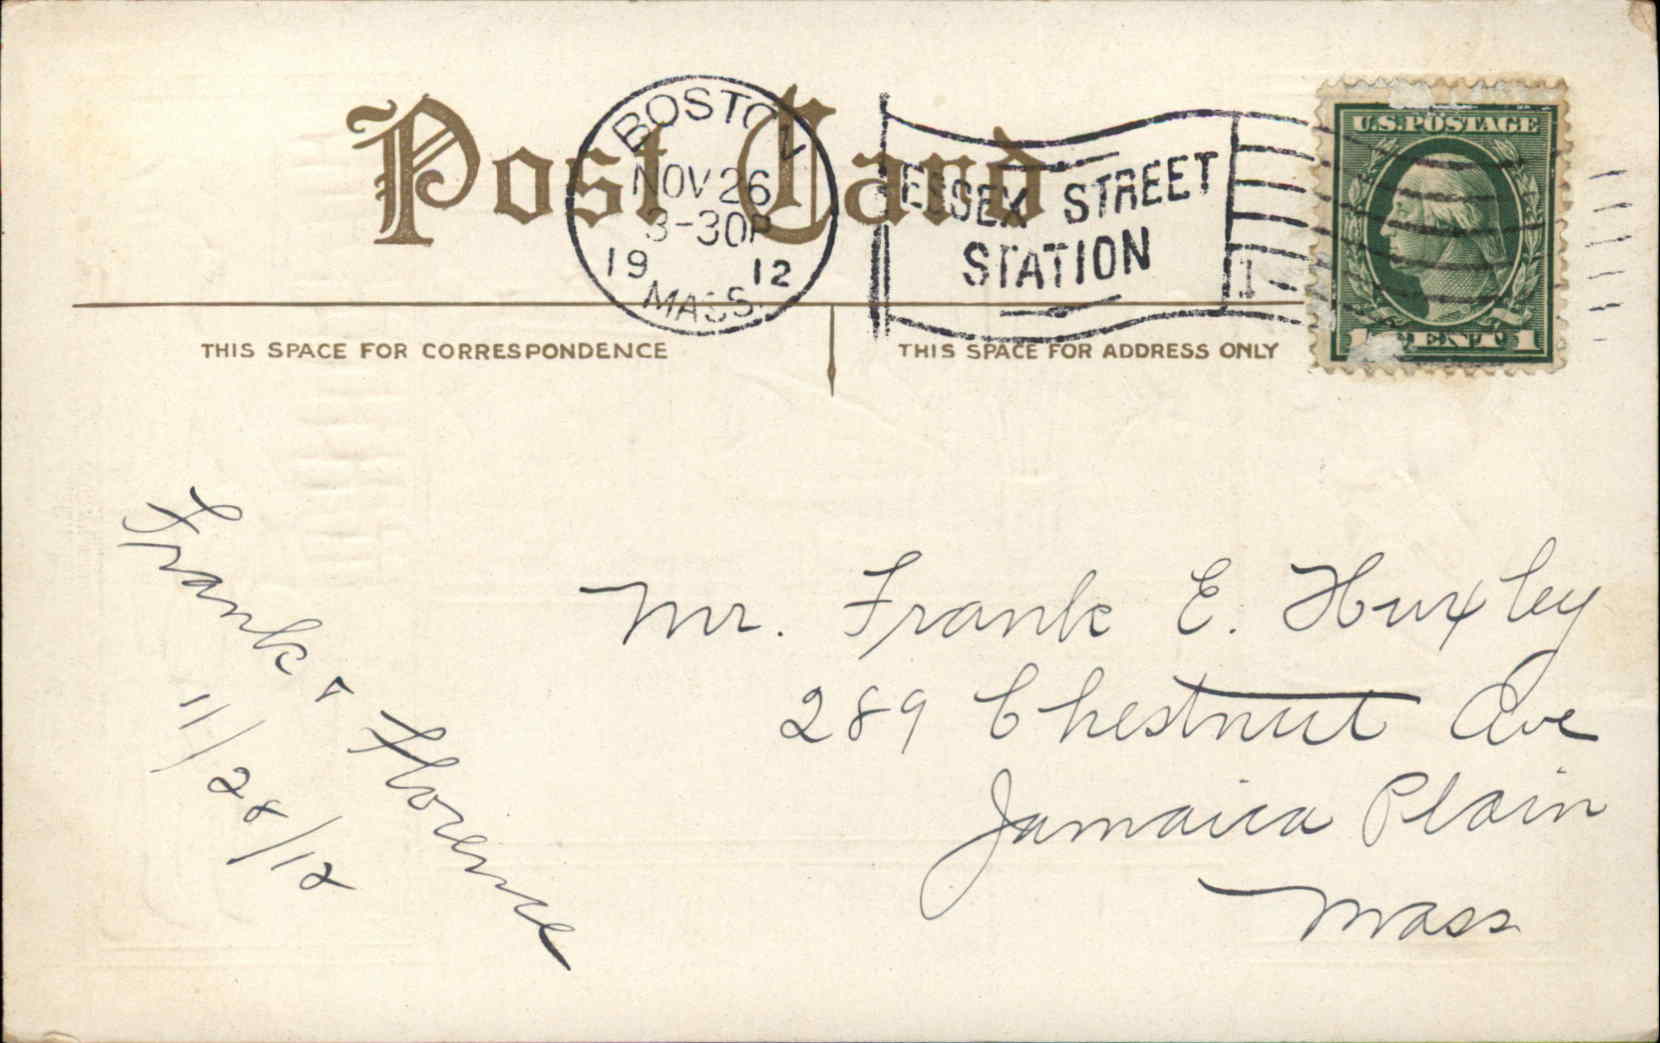 Post Card
BOSTON
NOV 26
3-30P
19 12
MASS.
ESSEX STREET
STATION
1
U.S. POSTAGE
1 CENT 1
THIS SPACE FOR CORRESPONDENCE
THIS SPACE FOR ADDRESS ONLY
Frank & Florence
11/28/12
Mr. Frank E. Huxley
289 Chestnut Ave
Jamaica Plain
Mass